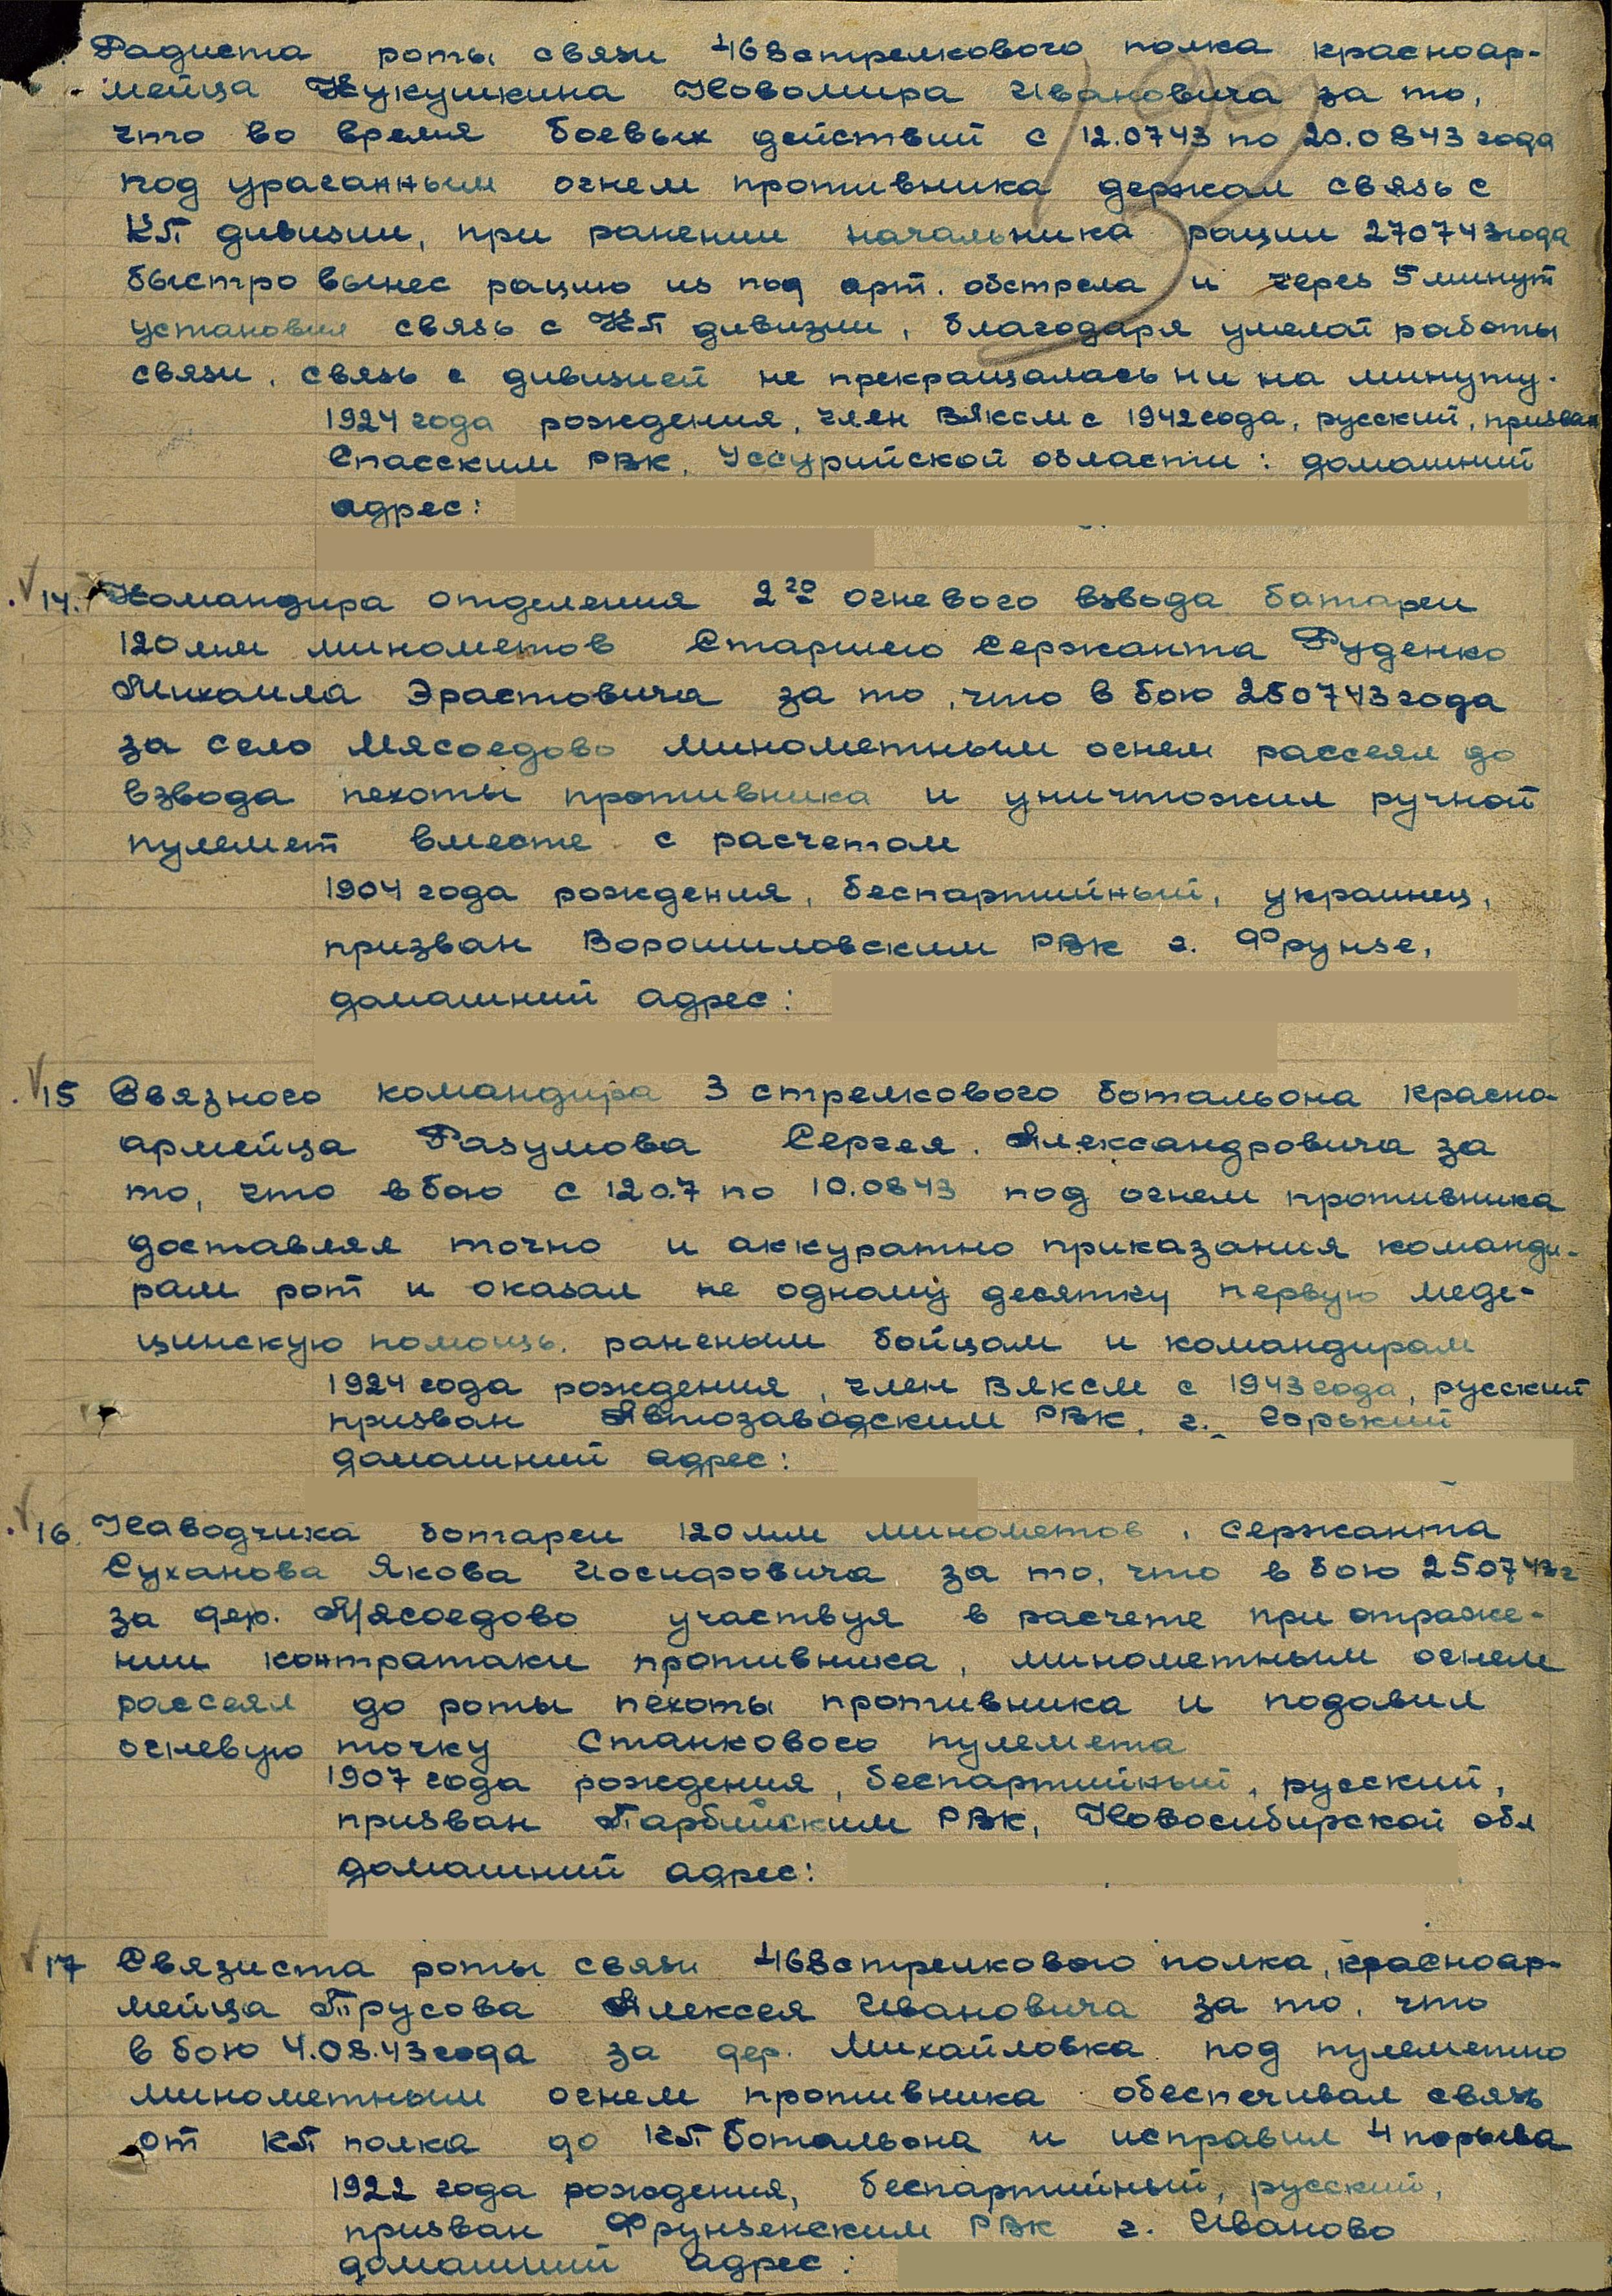 Радиста роты связи 468 стрелкового полка красноар-
мейца Кукушкина Новомира Ивановича за то,
что во время боевых действий с 12.0743 по 20.0843 года
под ураганным огнем противника держал связь с
КП дивизии, при ранении начальника рации 270743 года
быстро вынес рацию из под арт. обстрела и через 5 минут
установил связь с КП дивизии, благодаря умелой работы
связи, связь с дивизией не прекращалась ни на минуту.
1924 года рождения, член ВЛКСМ с 1942 года, русский, призван
Спасским РВК, Уссурийской области: домашний
адрес:
14. Командира отделения 2го огневого взвода батареи
120 мм минометов Старшего Сержанта Руденко
Михаила Эрастовича за то, что в бою 250743 года
за село Мясоедово минометным огнем рассеял до
взвода пехоты противника и уничтожил ручной
пулемет вместе с расчетом
1904 года рождения, беспартийный, украинец,
призван Ворошиловским РВК г. Фрунзе,
домашний адрес:
15 Связного командира 3 стрелкового ботальона красно-
армейца Разумова Сергея Александровича за
то, что в бою с 12 0.7 по 10.0843 под огнем противника
доставлял точно и аккуратно приказания команди-
рам рот и оказал не одному десятку первую меде-
цинскую помощь. раненым бойцам и командирам
1924 года рождения, член ВЛКСМ с 1943 года, русский
призван Автозаводским РВК, г. Горький
домашний адрес:
16. Наводчика ботареи 120 мм минометов, сержанта
Суханова Якова Иосифовича за то, что в бою 250743г
за дер. Мясоедово участвуя в расчете при отраже-
нии контратаки противника, минометным огнем
рассеял до роты пехоты противника и подавил
огневую точку Станкового пулемета
1907 года рождения, беспартийный, русский,
призван РВК, Новосибирской обл
домашний адрес:
17 Связиста роты связи 468 стрелкового полка, красноар-
мейца Трусова Алексея Ивановича за то, что
в бою 4.08.43 года за дер. Михайловка под пулеметно
минометным огнем противника обеспечивал связь
от КП полка до КП ботальона и исправил 4 порыва
1922 года рождения, беспартийный, русский,
призван Фрунзенским РВК г. Иваново
домашний адрес: